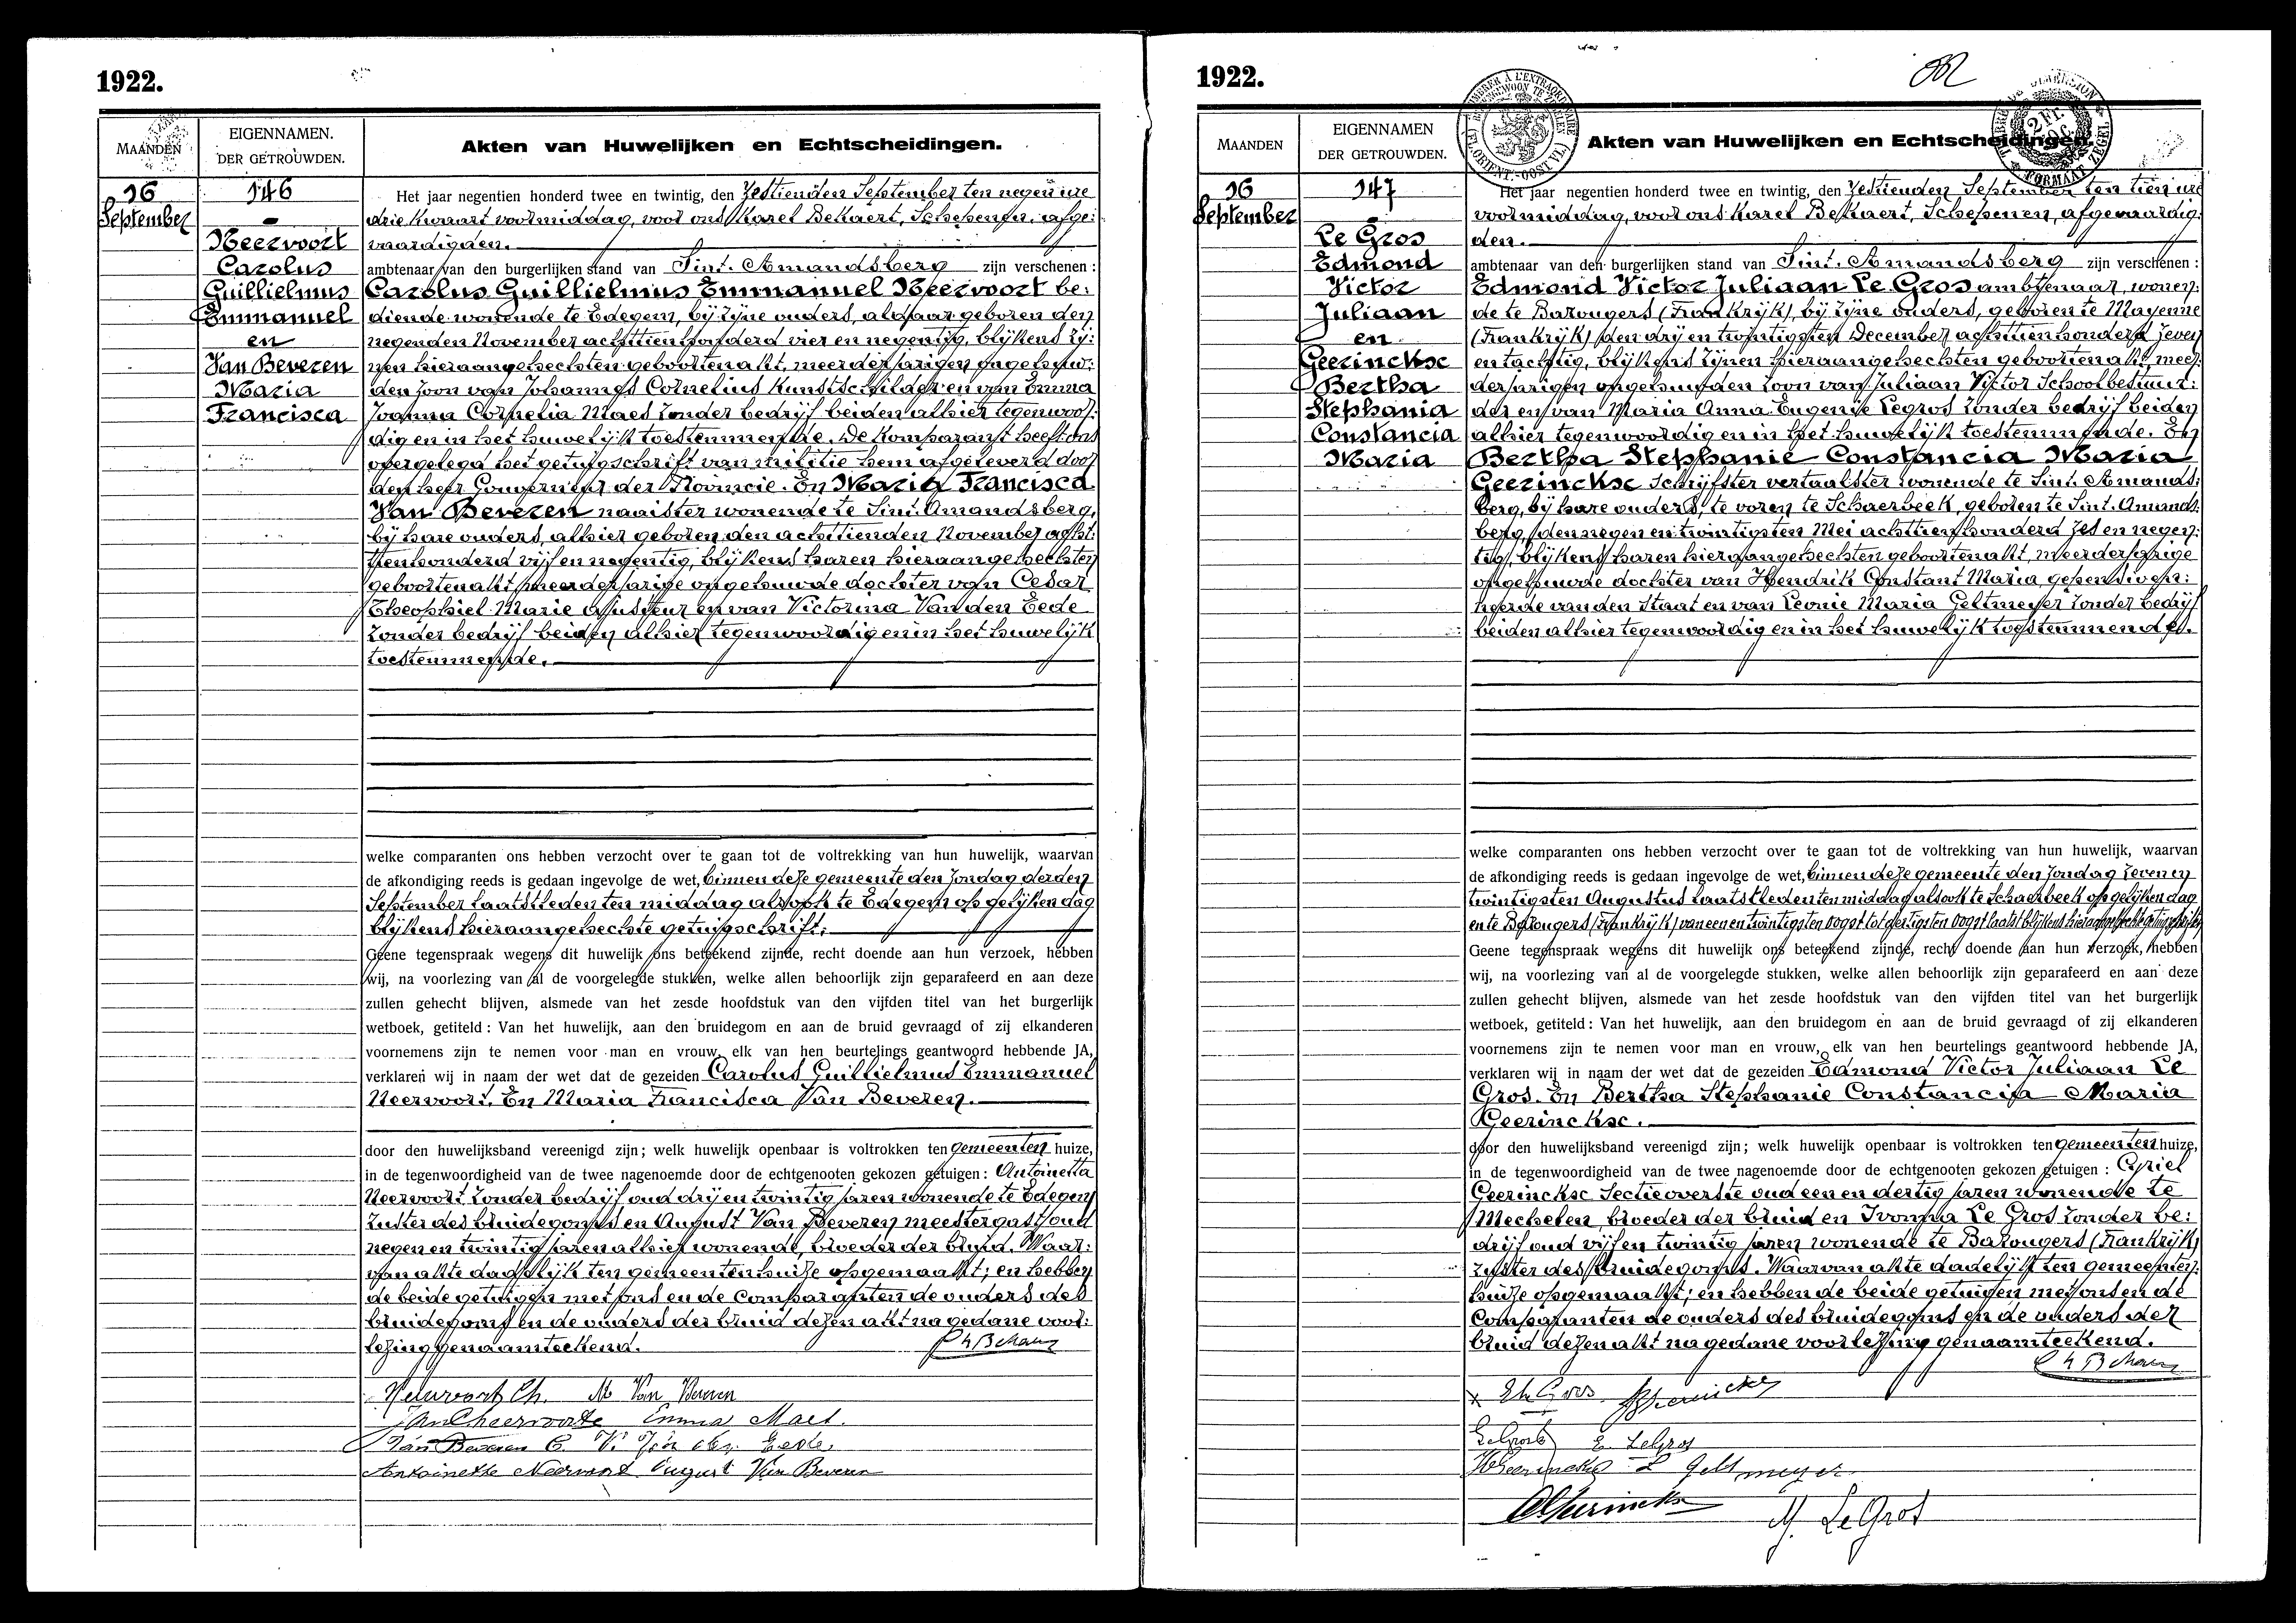 1922.
MAANDEN
EIGENNAMEN.
DER GETROUWDEN.
Akten van Huwelijken en Echtscheidingen.
16
September
146
Neervoort
Carolus
Guillielmus
Emmanuel
en
Van Beveren
Maria
Francisca
Het jaar negentien honderd twee en twintig, den Zestienden September ten negen ure
drie kwaart voormiddag, voor ons Karel Bekaert, Schepenen, afge:
vaardigden.
ambtenaar van den burgerlijken stand van Sint. Amandsberg zijn verschenen :
Carolus Guillielmus Emmanuel Neervoort be:
diende wonende te Edegem, bij zijne ouders, aldaar geboren den
negenden November achttien honderd vier en negentig, blijkens zij:
nen hieraangehechten geboortenakt, meerderjarigen ongehuw:
den zoon van Johannes Cornelius Kunstschilder en van Emma
Joanna Cornelia Maes zonder bedrijf beiden alhier tegenwoor:
dig en in het huwelijk toestemmende. De komparant heeft ons
overgelegd het getuigschrift van militie hem afgeleverd door
den heer Gouverneur der Provincie. En Maria Francisca
Van Beveren naaister wonende te Sint. Amandsberg,
bij hare ouders, alhier geboren den achttienden November acht:
tienhonderd vijf en negentig, blijkens haren hieraangehechten
geboortenakt, meerderjarige ongehuwde dochter van Cesar
Theophiel Marie ajusteur en van Victorina Van den Eede
zonder bedrijf beiden alhier tegenwoordig en in het huwelijk
toestemmende.
welke comparanten ons hebben verzocht over te gaan tot de voltrekking van hun huwelijk, waarvan
de afkondiging reeds is gedaan ingevolge de wet, binnen deze gemeente den Zondag derden
September laatstleden ten middag alsook te Edegem op gelijken dag
blijkens hieraangehechte getuigschrift;
Geene tegenspraak wegens dit huwelijk ons beteekend zijnde, recht doende aan hun verzoek, hebben
wij, na voorlezing van al de voorgelegde stukken, welke allen behoorlijk zijn geparafeerd en aan deze
zullen gehecht blijven, alsmede van het zesde hoofdstuk van den vijfden titel van het burgerlijk
wetboek, getiteld : Van het huwelijk, aan den bruidegom en aan de bruid gevraagd of zij elkanderen
voornemens zijn te nemen voor man en vrouw, elk van hen beurtelings geantwoord hebbende JA,
verklaren wij in naam der wet dat de gezeiden Carolus Guillielmus Emmanuel
Neervoort. En Maria Francisca Van Beveren.
door den huwelijksband vereenigd zijn ; welk huwelijk openbaar is voltrokken ten gemeenten huize,
in de tegenwoordigheid van de twee nagenoemde door de echtgenooten gekozen getuigen : Antoinetta
Neervoort zonder bedrijf oud drij en twintig jaren wonende te Edegem
zuster des bruidegoms en August Van Beveren meestergast oud
negen en twintig jaren alhier wonende, broeder der bruid. Waar:
van akte dadelijk ten gemeentenhuize opgemaakt; en hebben
de beide getuigen met ons en de Comparanten de ouders des
bruidegoms en de ouders der bruid dezen akt na gedane voor:
lezing genaamteekend.
Neervoort Ch. M Van Beveren
Emma Maes.
Van Beveren C. V. Van den Eede
Antoinette Neervoort August Van Beveren
1922.
MAANDEN
EIGENNAMEN
DER GETROUWDEN.
Akten van Huwelijken en Echtscheidingen.
16
September
147
Le Gros
Edmond
Victor
Juliaan
en
Geerinckse
Bertha
Stephania
Constancia
Maria
Het jaar negentien honderd twee en twintig, den Zestienden September ten tien ure
voormiddag, voor ons Karel Bekaert, Schepenen, afgevaardig:
den.
ambtenaar van den burgerlijken stand van Sint. Amandsberg zijn verschenen :
Edmond Victor Juliaan Le Gros ambtenaar, wonen:
de te Bazougers (Frankrijk), bij zijne ouders, geboren te Mayenne
(Frankrijk) den drij en twintigsten December achttien honderd zeven
en tachtig, blijkens zijnen hieraangehechten geboortenakt, meer:
derjarigen ongehuwden zoon van Juliaan Victor Schoolbestuur:
der en van Maria Anna Eugenie Legros zonder bedrijf beiden
alhier tegenwoordig en in het huwelijk toestemmende. En
Bertha Stephanie Constancia Maria
Geerinckse Schrijfster vertaalster wonende te Sint. Amands:
berg, bij hare ouders, te voren te Schaerbeek, geboren te Sint. Amands:
berg, den negen en twintigsten Mei achttien honderd zes en negen:
tig, blijkens haren hieraangehechten geboortenakt, meerderjarige
ongehuwde dochter van Hendrik Constant Maria, gepensioen:
neerde van den Staat en van Leonie Maria Geltmeyer zonder bedrijf
beiden alhier tegenwoordig en in het huwelijk toestemmende.
welke comparanten ons hebben verzocht over te gaan tot de voltrekking van hun huwelijk, waarvan
de afkondiging reeds is gedaan ingevolge de wet, binnen deze gemeente den Zondag zeven en
twintigsten Augustus laatstleden ten middag alsook te Schaerbeek op gelijken dag
en te Bazougers (Frankrijk) van een en twintigsten oogst tot dertigsten oogst laatst blijkens hieraangehechte getuigschriften
Geene tegenspraak wegens dit huwelijk ons beteekend zijnde, recht doende aan hun verzoek, hebben
wij, na voorlezing van al de voorgelegde stukken, welke allen behoorlijk zijn geparafeerd en aan deze
zullen gehecht blijven, alsmede van het zesde hoofdstuk van den vijfden titel van het burgerlijk
wetboek, getiteld : Van het huwelijk, aan den bruidegom en aan de bruid gevraagd of zij elkanderen
voornemens zijn te nemen voor man en vrouw, elk van hen beurtelings geantwoord hebbende JA,
verklaren wij in naam der wet dat de gezeiden Edmond Victor Juliaan Le
Gros. En Bertha Stephanie Constancia Maria
Geerinckse.
door den huwelijksband vereenigd zijn ; welk huwelijk openbaar is voltrokken ten gemeenten huize,
in de tegenwoordigheid van de twee nagenoemde door de echtgenooten gekozen getuigen : Cyriel
Geerinckse Sectieoverste oud een en dertig jaren wonende te
Mechelen, broeder der bruid en Ivonna Le Gros zonder be:
drijf oud vijf en twintig jaren wonende te Bazougers (Frankrijk)
zuster des bruidegoms. Waarvan akte dadelijk ten gemeenten:
huize opgemaakt; en hebben de beide getuigen met ons en de
Comparanten de ouders des bruidegoms en de ouders der
bruid dezen akt na gedane voorlezing genaamteekend.
E. LeGros
L Geltmeyer
Y. Le Gros